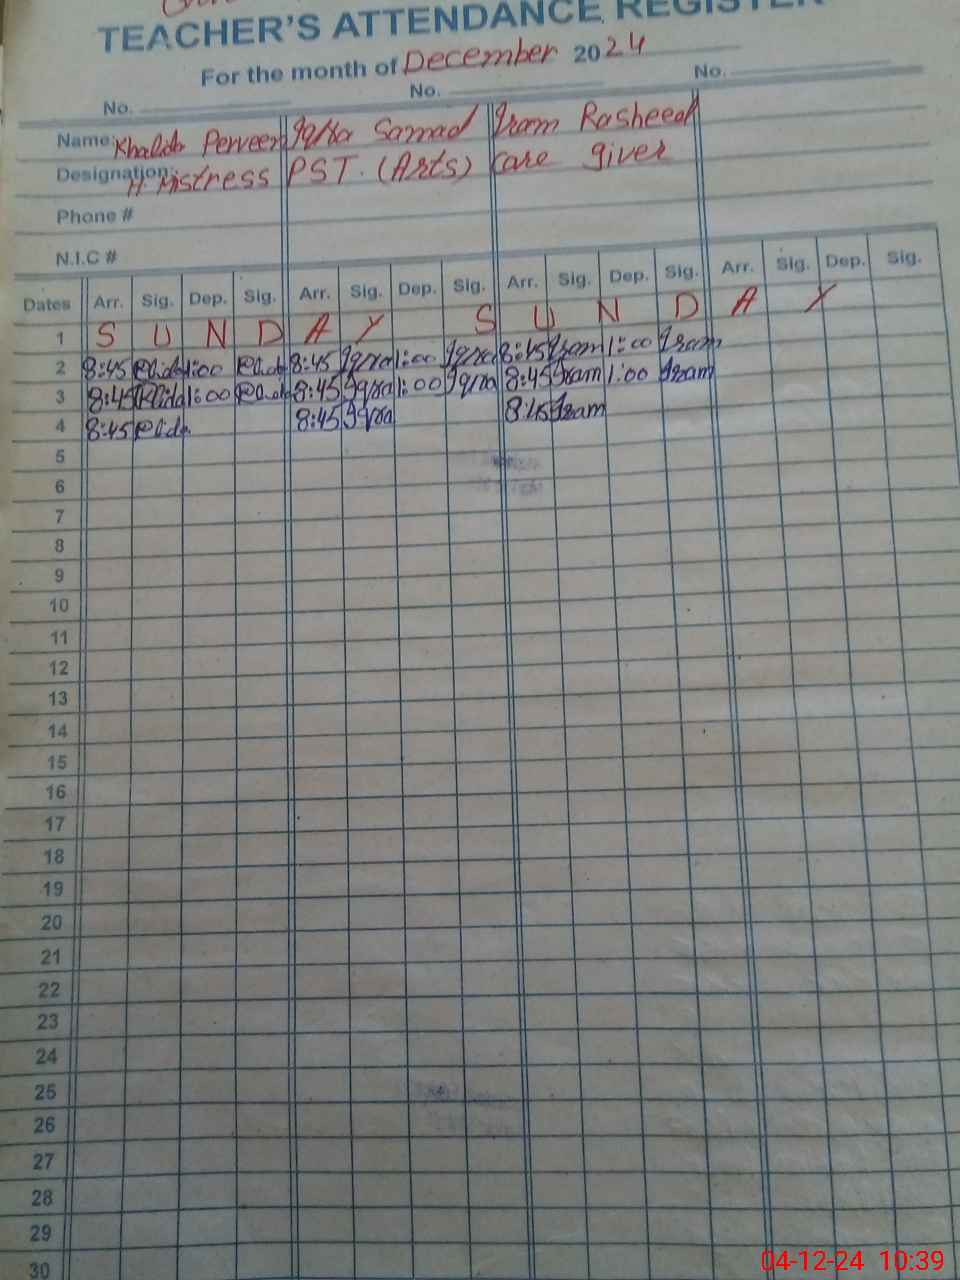 TEACHER'S ATTENDANCE REGISTER
For the month of December 2024
No. No. No.
Name: Khalida Perveen Iqra Samad Iram Rasheed
Designation: H. Mistress PST. (Arts) Care giver
Phone #
N.I.C #
Dates Arr. Sig. Dep. Sig. Arr. Sig. Dep. Sig. Arr. Sig. Dep. Sig. Arr. Sig. Dep. Sig.
1 S U N D A Y S U N D A Y
2 8:45 1:00 8:45 Iqra 1:00 Iqra 8:45 Iram 1:00 Iram
3 8:45 1:00 8:45 Iqra 1:00 Iqra 8:45 Iram 1:00 Iram
4 8:45 8:45 Iqra 8:45 Iram
5
6
7
8
9
10
11
12
13
14
15
16
17
18
19
20
21
22
23
24
25
26
27
28
29
30
04-12-24 10:39